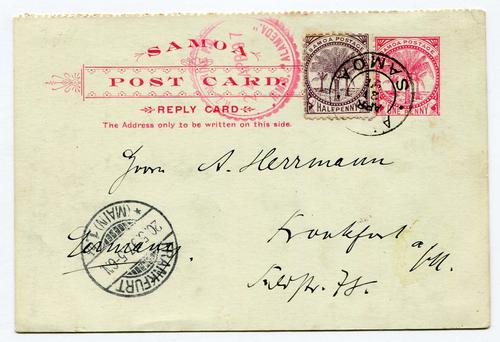 SAMOA
POST CARD
REPLY CARD
The Address only to be written on this side.
"ALAMEDA."
SAMOA POSTAGE
HALFPENNY
SAMOA
APR
SAMOA POSTAGE
ONE PENNY
Herrn A. Herrmann
Frankfurt a/M.
Germany.
FRANKFURT
* (MAIN) 1